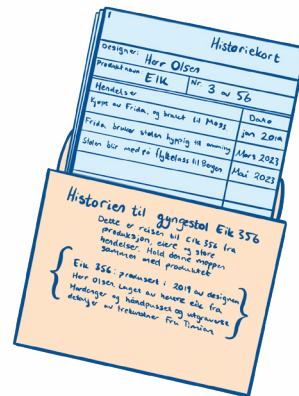 Historiekort
Designer: Herr Olsen
Produktnavn EIK Nr. 3 av 56
Hendelser Dato
Kjøpt av Frida, og brukt til Moss jan 2019
Frida bruker stolen hyppig til amming Mars 2023
Stolen blir med på flyttelass til Bergen Mai 2023
Historien til gyngestol Eik 356
Dette er reisen til Eik 356 fra
produksjon, eiere og store
hendelser. Hold denne mappen
sammen med produktet
Eik 356: produsert i 2019 av designer
Herr Olsen. Laget av heltre eik fra
Hardanger og håndpusset og utgraverte
detaljer av trekunstner Fru Timian